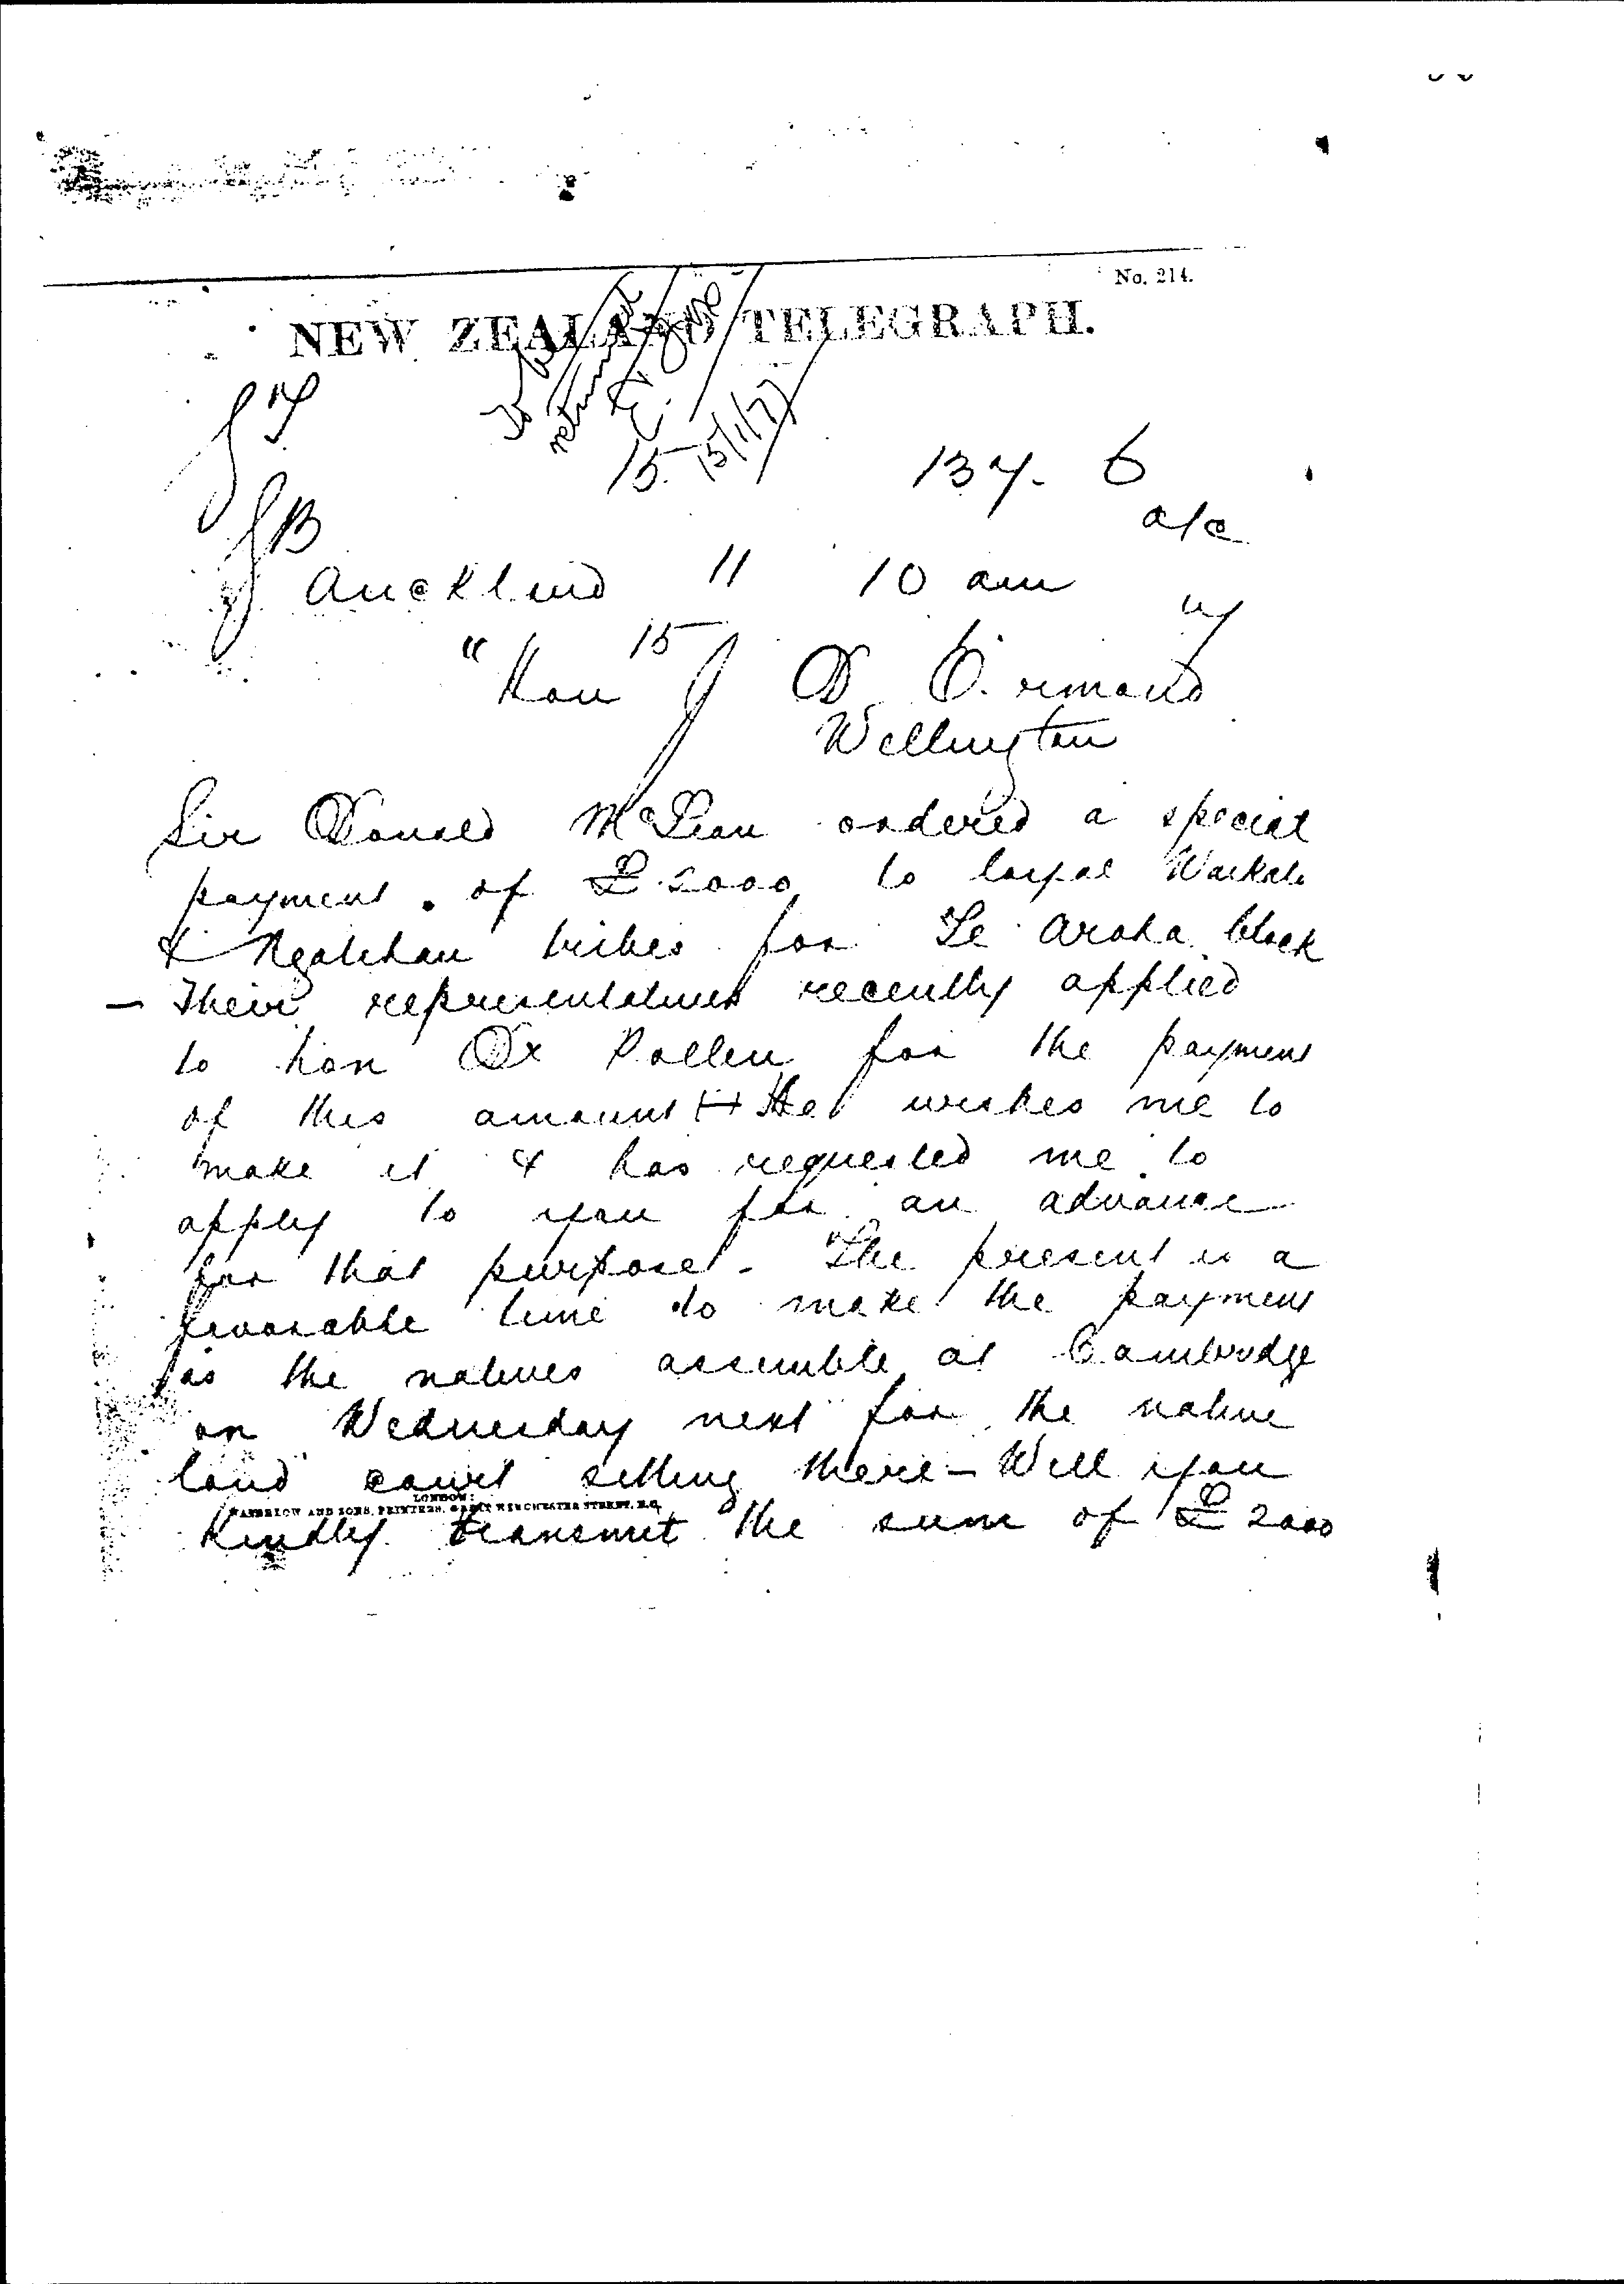 No. 214.
NEW ZEALAND TELEGRAPH.
To be
return
15. 15/1/77
137. 6
a/c
Auckland 11 10 am
15
"Hon J D Ormond
Wellington
Sir Donald McLean ordered a special
payment of £2000 to loyal Waikato
& Ngatihau tribes for Te Aroha block
- Their representatives recently applied
to hon Dr Pollen for the payment
of this amount & He wishes me to
make it & has requested me to
apply to you for an advance
for that purpose - The present is a
favorable time to make the payment
as the natives assemble at Cambridge
on Wednesday next for the native
land court sitting there - Will you
LONDON:
WATERLOW AND SONS, PRINTERS, GREAT WINCHESTER STREET, E.C.
kindly transmit the sum of £2000